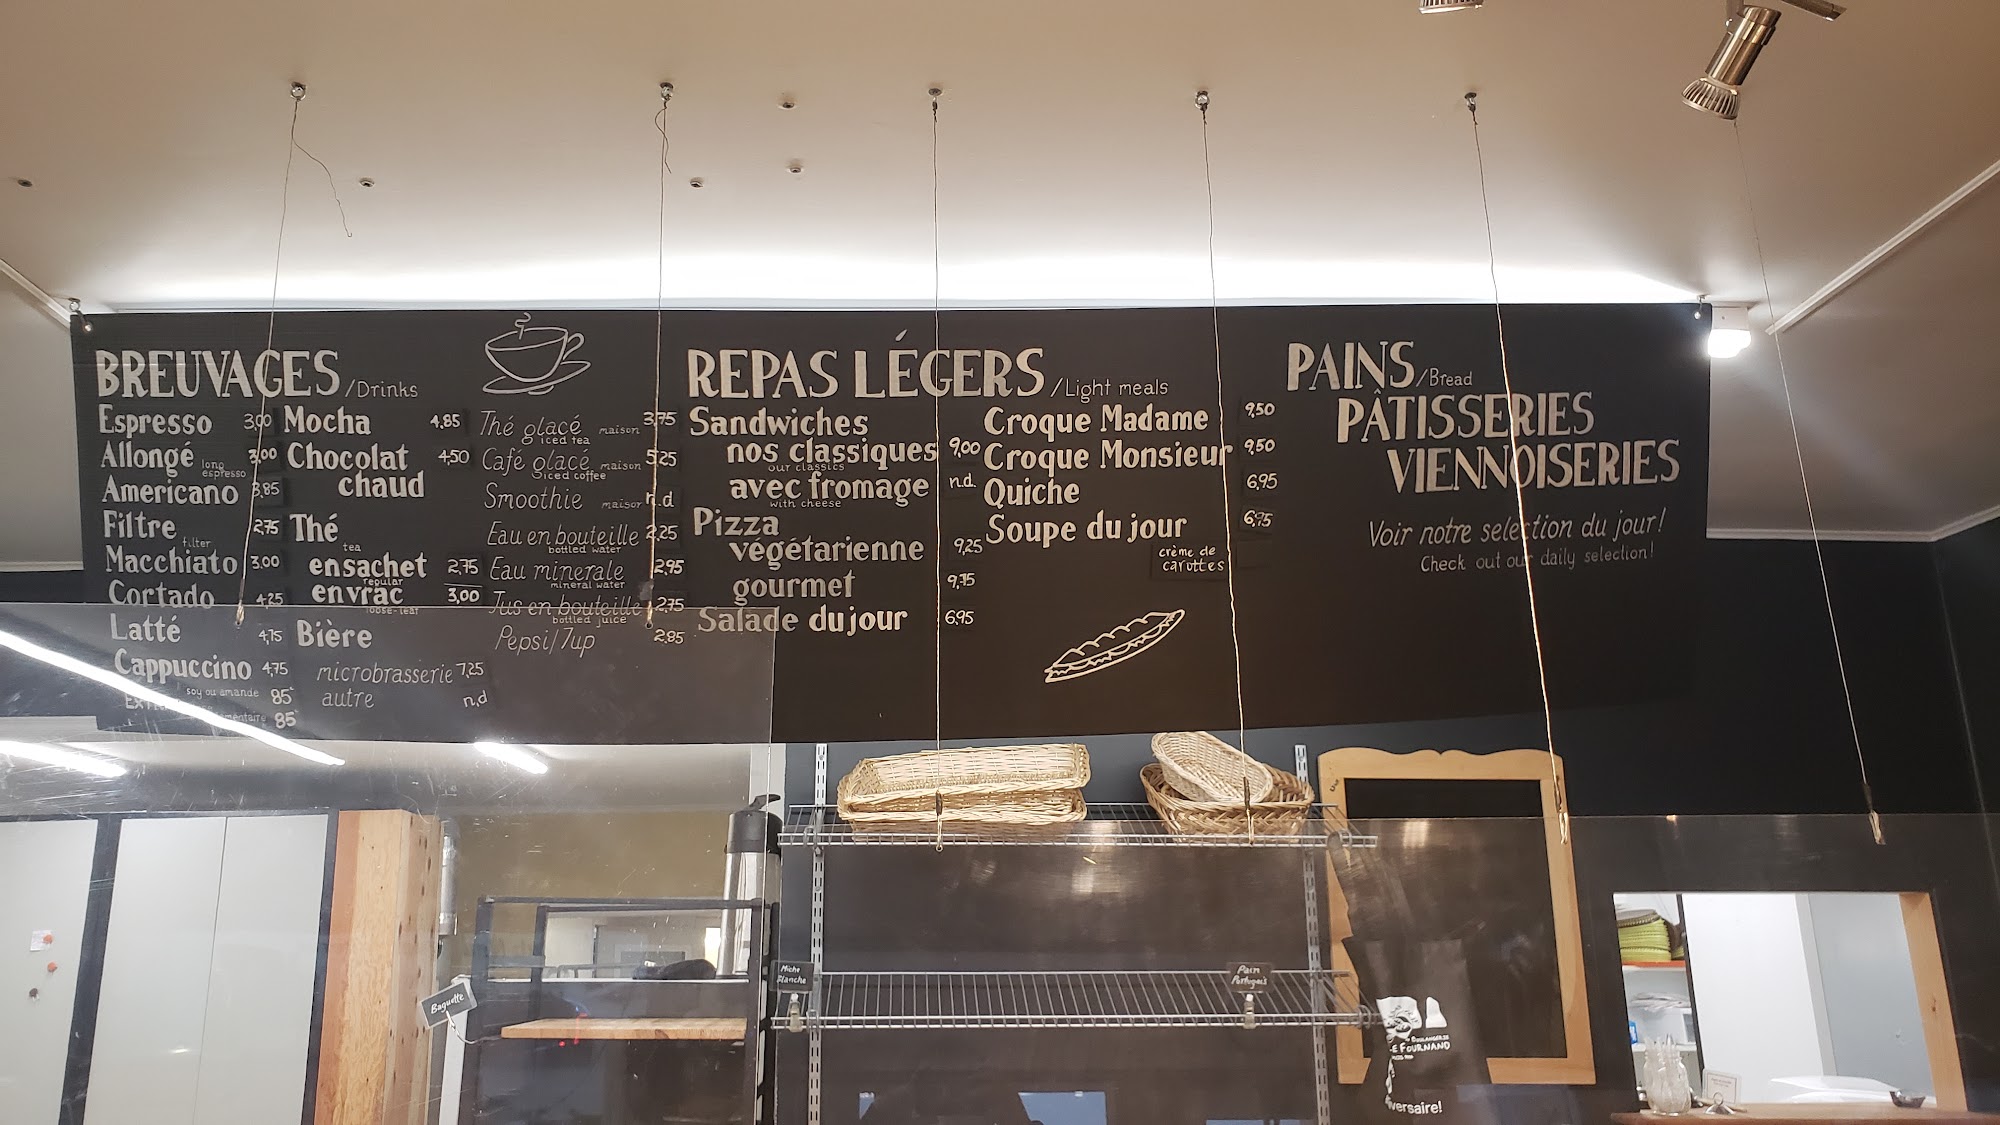 BREUVAGES /Drinks
Espresso 3,00
Allongé long espresso 3,00
Americano 3,85
Filtre filter 2,75
Macchiato 3,00
Cortado 4,25
Latté 4,75
Cappuccino 4,75
soy ou amande 85¢
85¢
Mocha 4,85
Chocolat 4,50
chaud
Thé
tea
en sachet 2,75
regular
en vrac 3,00
loose-leaf
Bière
microbrasserie 7,25
autre n,d
Thé glacé maison 3,75
iced tea
Café glacé maison 5,25
iced coffee
Smoothie maison n.d
Eau en bouteille 2,25
bottled water
Eau minerale 2,95
mineral water
Jus en bouteille 2,75
bottled juice
Pepsi/7up 2,85
REPAS LÉGERS /Light meals
Sandwiches
nos classiques 9,00
our classics
avec fromage n.d.
with cheese
Pizza
végétarienne 9,25
gourmet 9,75
Salade du jour 6,95
Croque Madame 9,50
Croque Monsieur 9,50
Quiche 6,95
Soupe du jour 6,95
crème de
carottes
PAINS /Bread
PÂTISSERIES
VIENNOISERIES
Voir notre selection du jour!
Check out our daily selection!
Baguette
Miche
Blanche
Pain
Portugais
BOULANGERIE
LE FOURNAND
versaire!